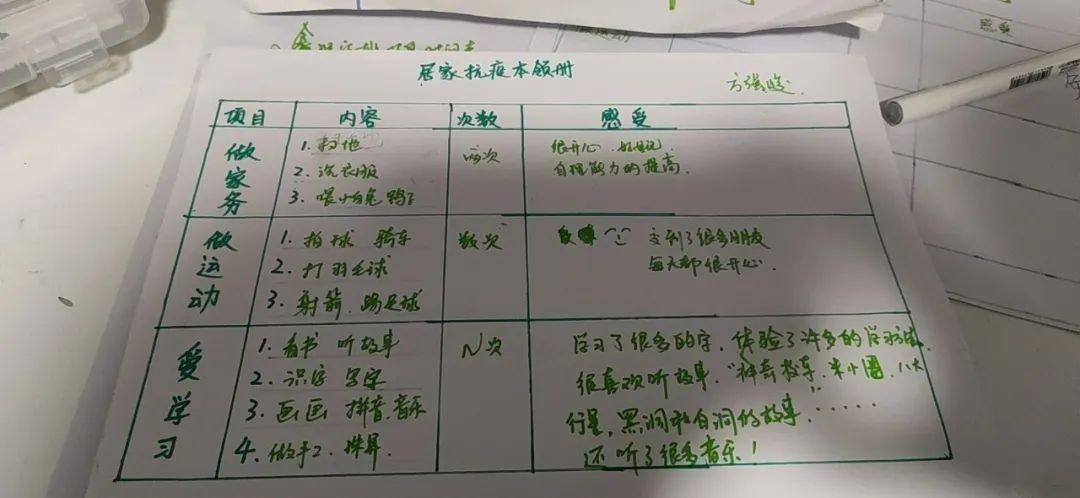 感受
居家抗疫本领册
项目 内容 次数 感受
做家务
1. 扫地
2. 洗衣服
3. 喂小白兔 鸭子
两次
很开心
自理能力的提高.
做运动
1. 拍球 骑车
2. 打羽毛球
3. 射箭.踢足球
数次
交到了很多朋友
每天都很开心.
爱学习
1. 看书 听故事
2. 识字 写字
3. 画画 拼音.音乐
4. 做手工. 珠算.
N次
学习了很多的字,体验了许多的学习方法.
很喜欢听故事."神奇校车.米小圈.八大
行星,黑洞和白洞的故事......
还听了很多音乐!